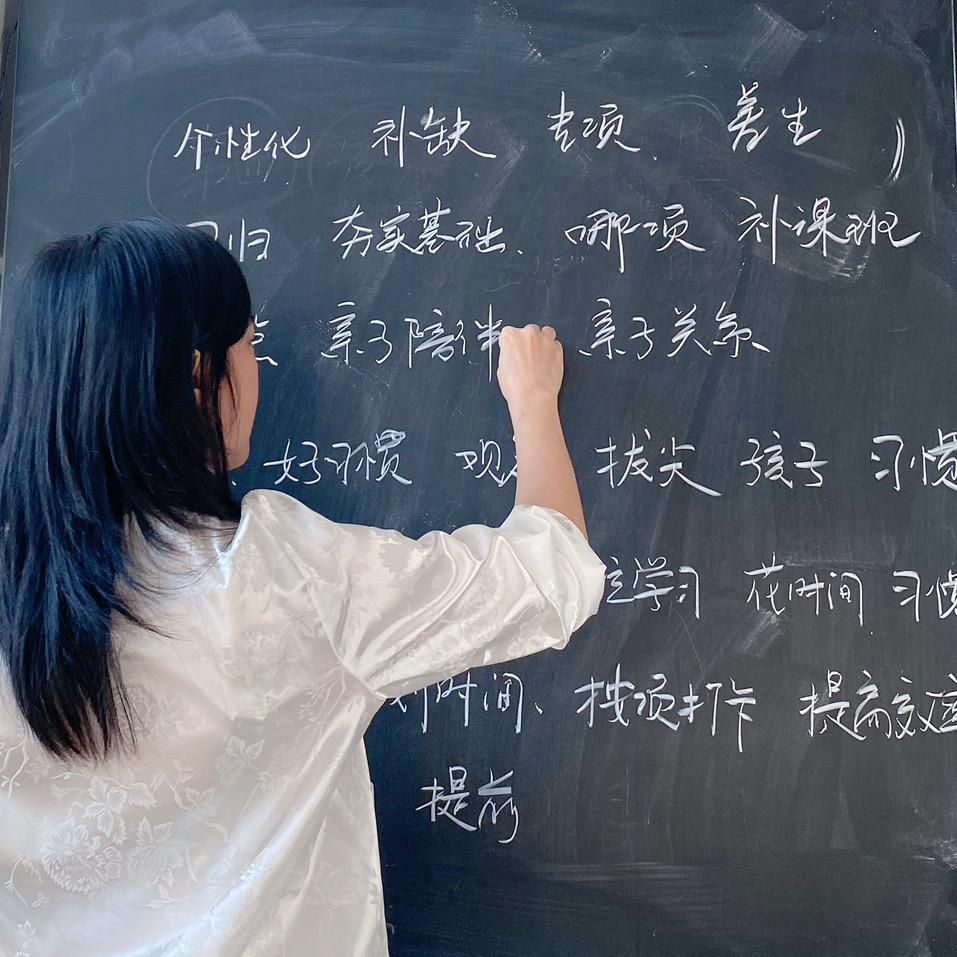 个性化 补缺 专项 善生 )
归 夯实基础、哪项 补课班
亲子陪伴 亲子关系
好习惯 观 拔尖 孩子 习惯
学习 花时间 习惯
时间、按项打卡 提高效率
提前